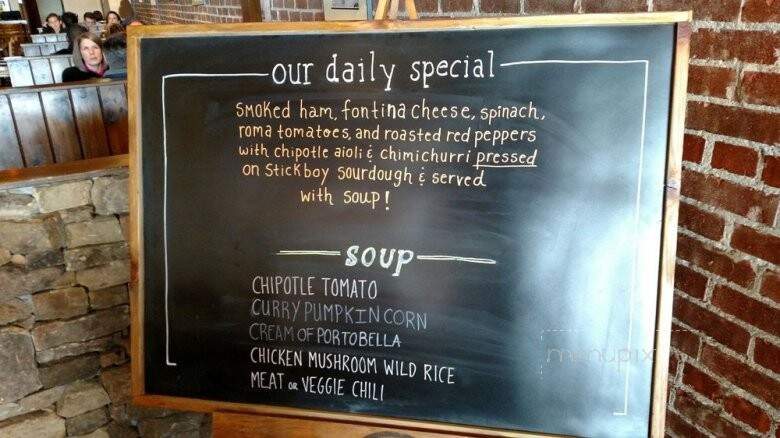 our daily special
smoked ham, fontina cheese, spinach,
roma tomatoes, and roasted red peppers
with chipotle aioli & chimichurri pressed
on Stickboy sourdough & served
with soup!
soup
CHIPOTLE TOMATO
CURRY PUMPKIN CORN
CREAM OF PORTOBELLA
CHICKEN MUSHROOM WILD RICE
MEAT OR VEGGIE CHILI
menupix